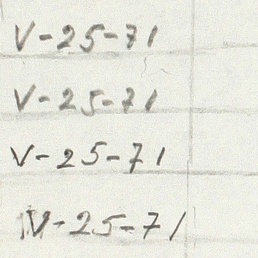 V-25-71
V-25-71
V-25-71
IV-25-71